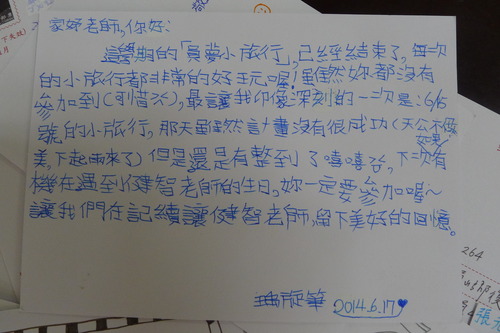 家妤老師,你好:
這學期的「員夢小旅行」,已經結束了,每一次
的小旅行都非常的好玩喔!雖然妳都沒有
參加到(可惜),最讓我印象深刻的一次是:6/6
號的小旅行,那天雖然計畫沒有很成功(天公不做
美,下起雨來了)但是還是有整到了嘻嘻,下次有
機在遇到健智老師的生日,妳一定要參加喔~
讓我們在記續讓健智老師,留下美好的回憶。
旋筆 2014.6.17♥
264